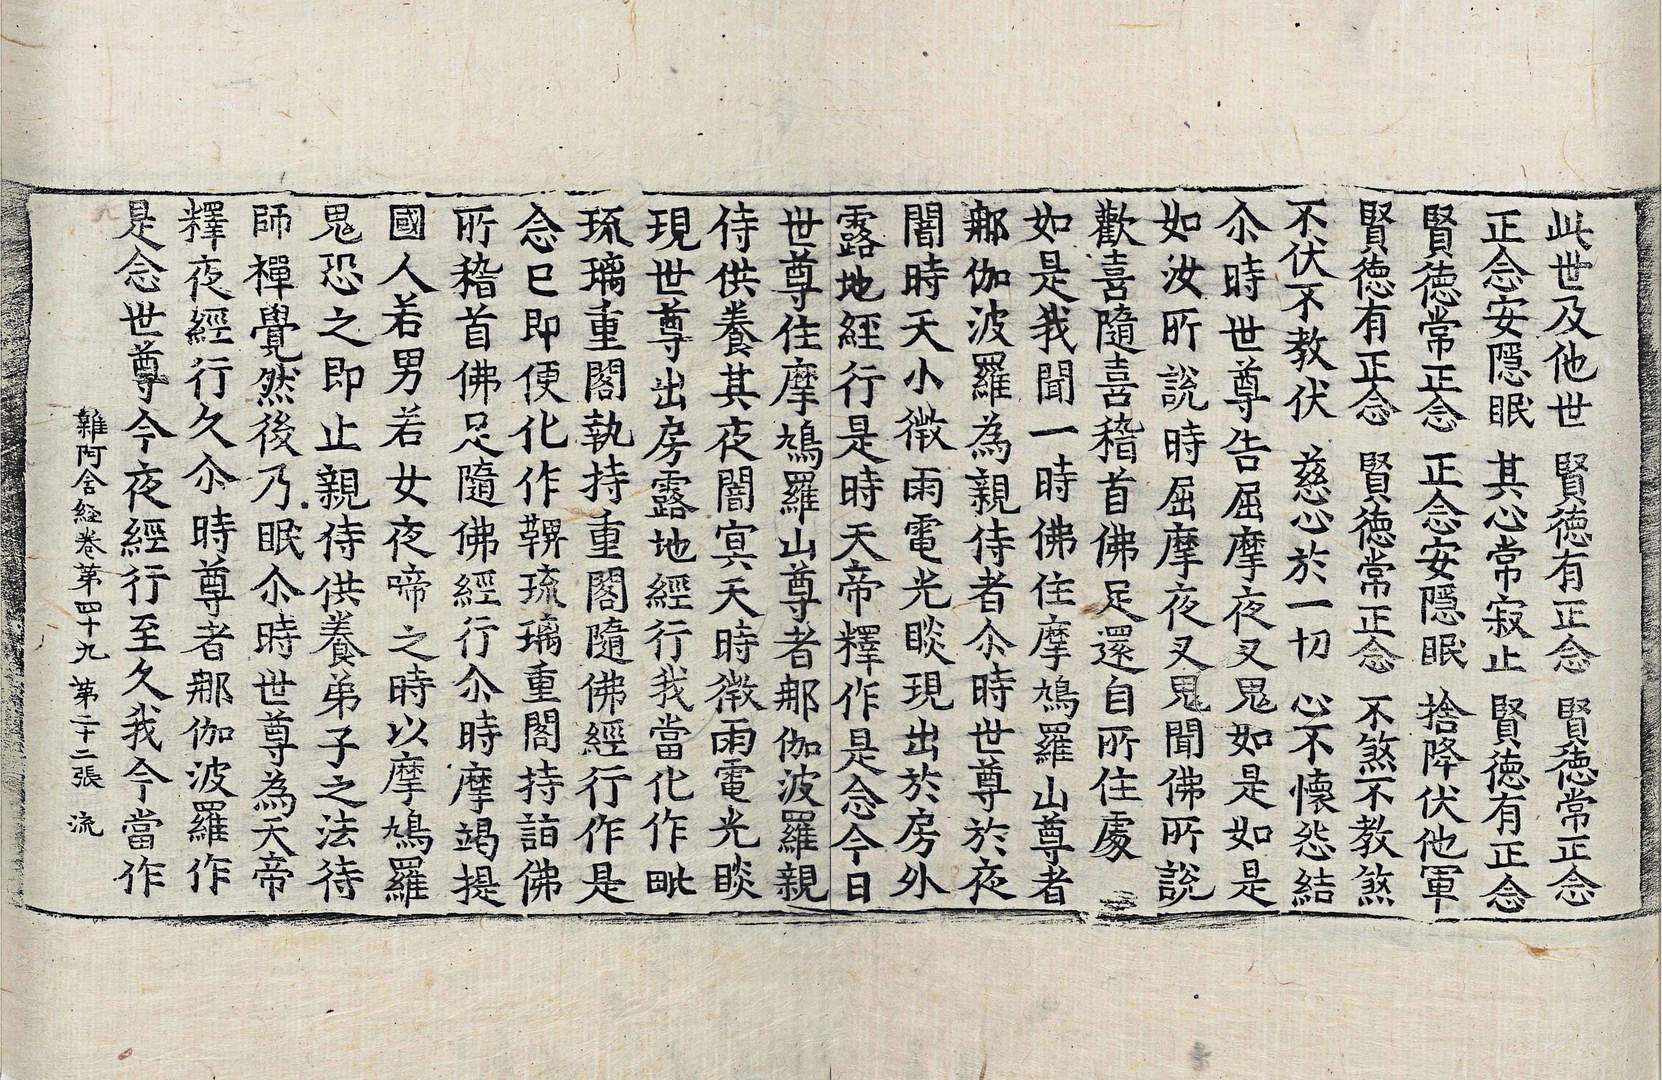 此世及他世 賢徳有正念 賢徳常正念
正念安隱眠 其心常寂止 賢徳有正念
賢徳常正念 正念安隱眠 捨降伏他軍
賢徳有正念 賢徳常正念 不煞不教煞
不伏不教伏 慈心於一切 心不懷怨結
尒時世尊告屈摩夜叉鬼如是如是
如汝所說時屈摩夜叉鬼聞佛所說
歡喜隨喜稽首佛足還自所住處
如是我聞一時佛住摩鳩羅山尊者
那伽波羅為親侍者尒時世尊於夜
闇時天小微雨電光睒現出於房外
露地經行是時天帝釋作是念今日
世尊住摩鳩羅山尊者那伽波羅親
侍供養其夜闇冥天時微雨電光睒
現世尊出房露地經行我當化作毗
琉璃重閣執持重閣隨佛經行作是
念已即便化作鞞琉璃重閣持詣佛
所稽首佛足隨佛經行尒時摩竭提
國人若男若女夜啼之時以摩鳩羅
鬼恐之即止親侍供養弟子之法待
師禪覺然後乃眠尒時世尊為天帝
釋夜經行久尒時尊者那伽波羅作
是念世尊今夜經行至久我今當作
雜阿含經卷第四十九 第二十二張 流